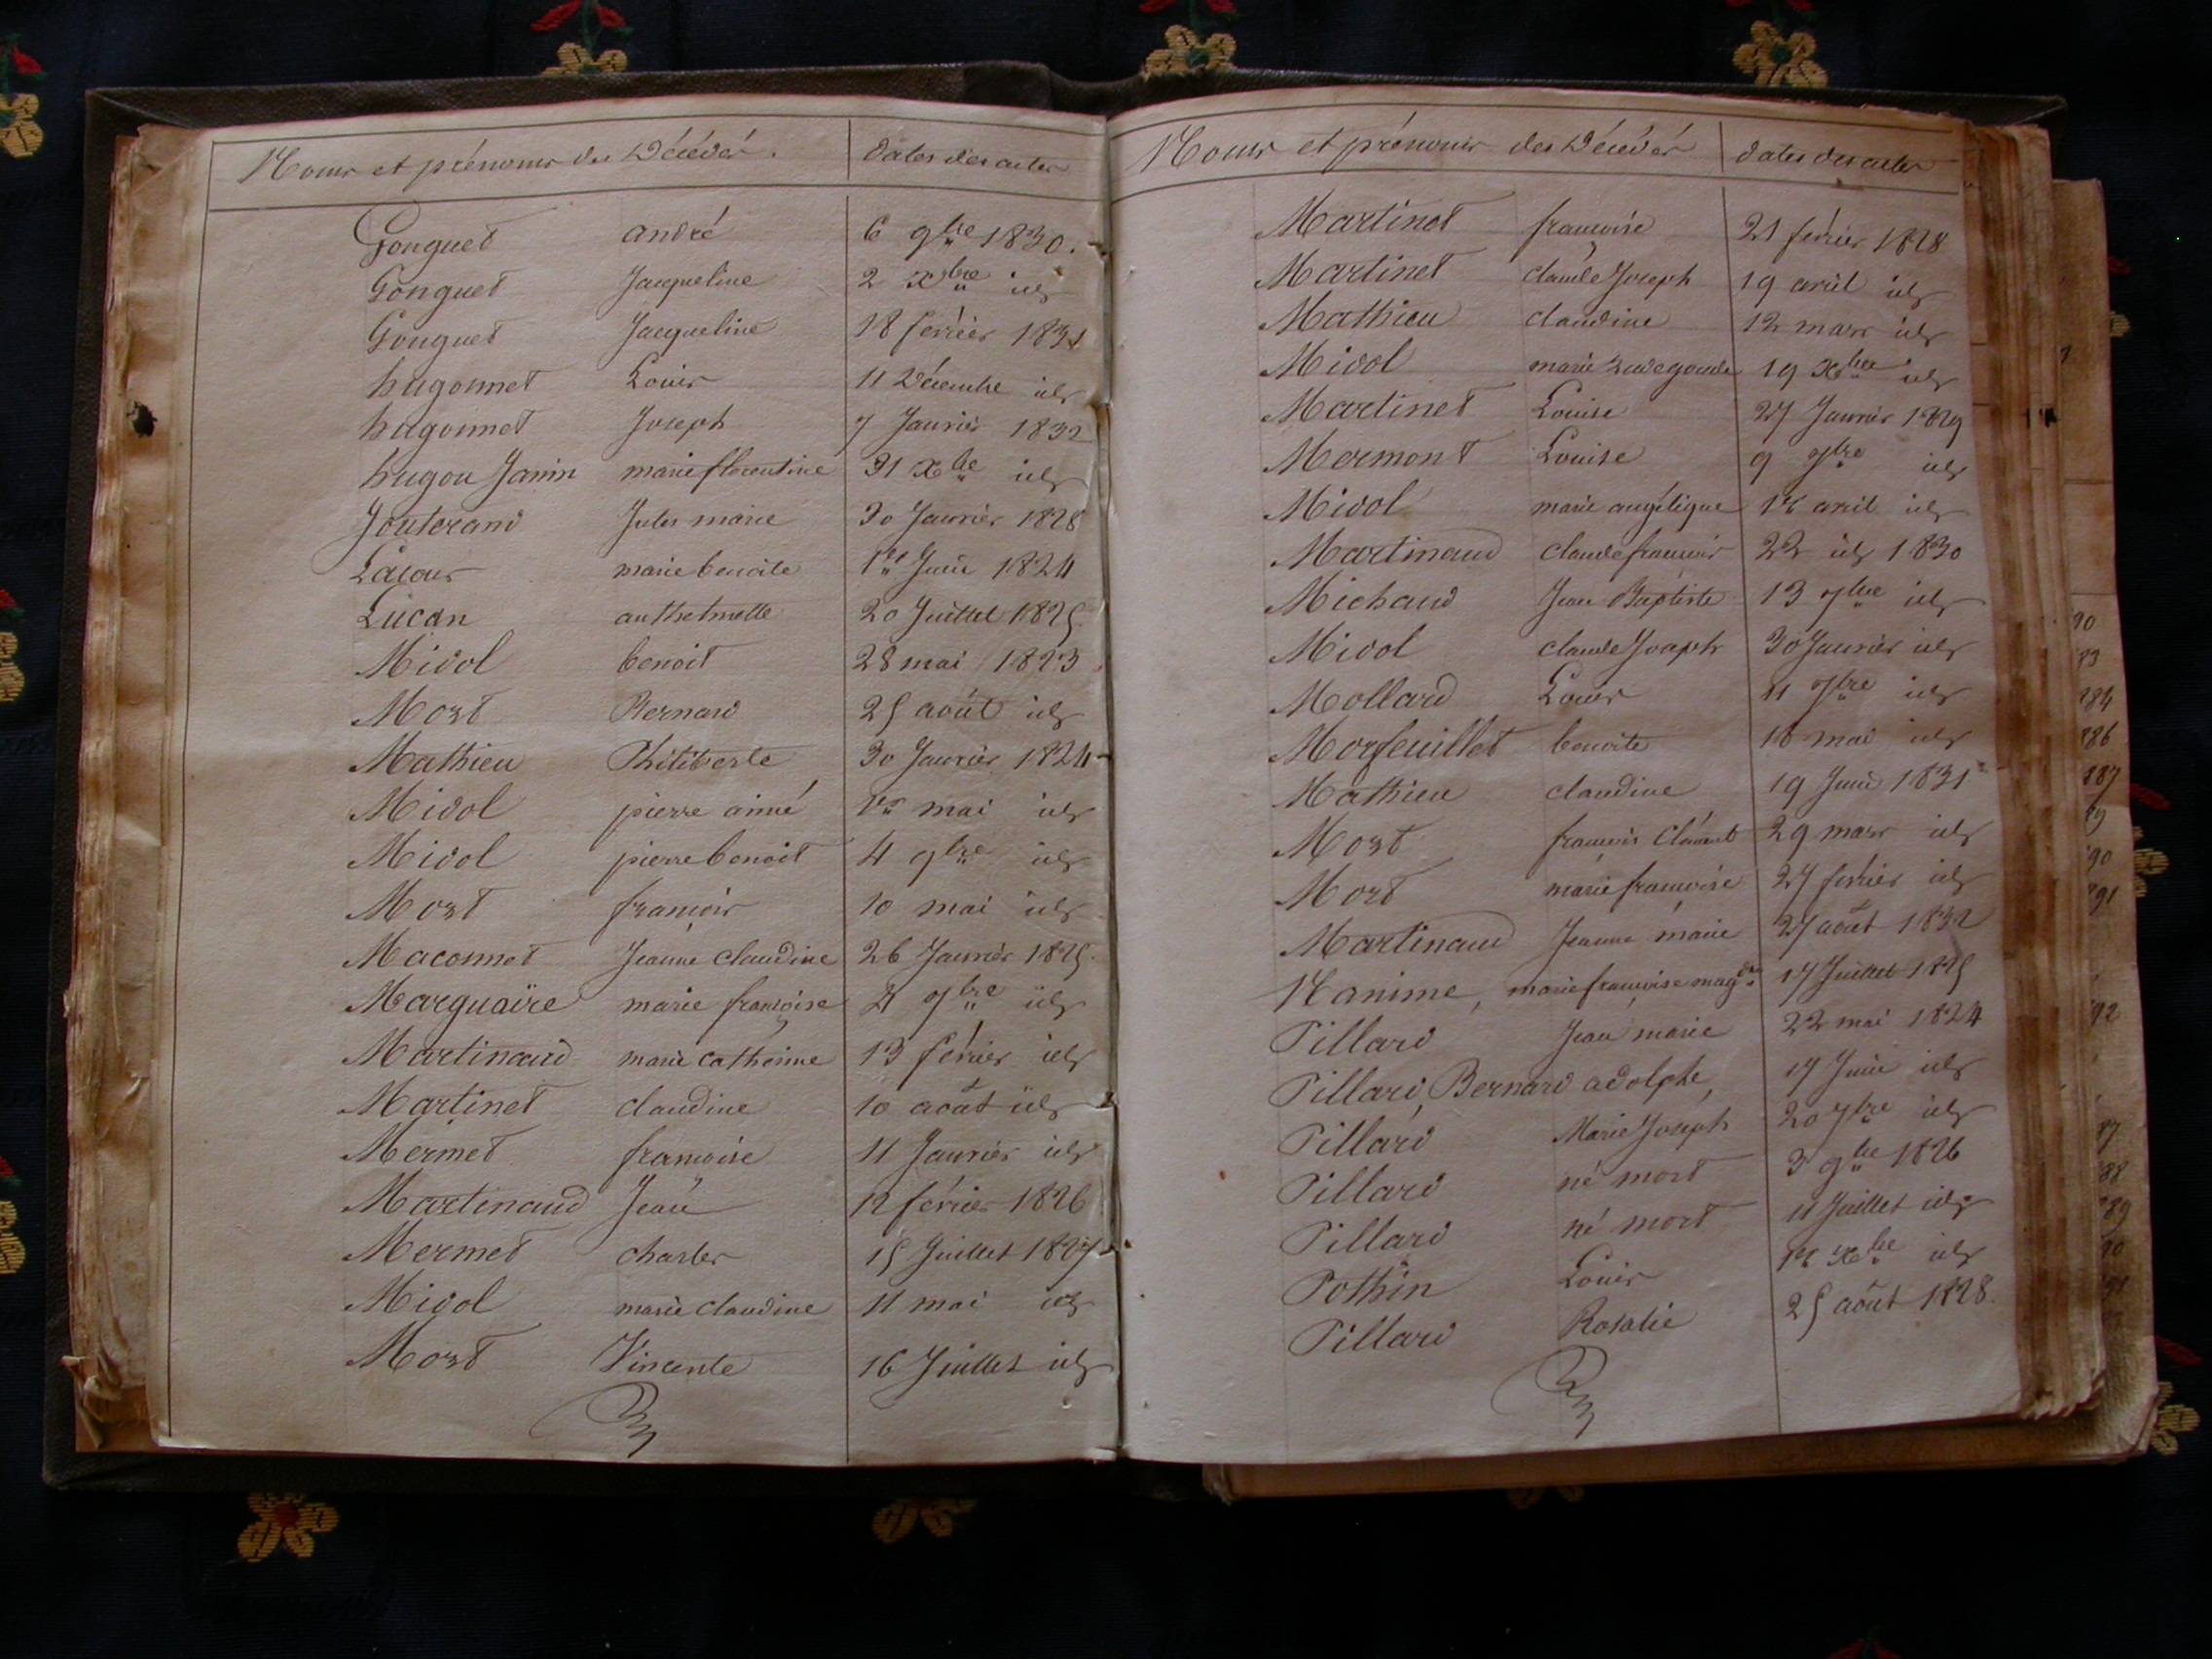 Noms et prénoms des Décédés. Dates des actes
Gonguet andré 6 9bre 1830.
Gonguet Jacqueline 2 Xbre id
Gonguet Jacqueline 18 février 1831
hugonnet Louis 11 Décembre id
hugonnet Joseph 7 Janvier 1832
hugon Janin marie florentine 31 Xbre id
Jouterand Jules marie 30 Janvier 1828
Lacour marie benoite 1er Juin 1824
Lucan anthelmette 20 Juillet 1825
Midol benoit 28 mai 1823
Mort Bernard 25 août id
Mathieu Philiberte 30 Janvier 1824
Midol pierre aimé 1er mai id
Midol pierre benoit 4 9bre id
Mort françois 10 mai id
Maconnet Jeanne Claudine 26 Janvier 1825.
Marquaire marie françoise 4 7bre id
Martinand marie catherine 13 février id
Martinet claudine 10 août id
Mermet françoise 11 Janvier id
Martinaud Jean 12 février 1826
Mermet charles 15 Juillet 1827
Midol marie claudine 11 mai id
Mort Vincente 16 Juillet id
Noms et prénoms des Décédés dates des actes
Martinet françoise 21 février 1828
Martinet claude Joseph 19 avril id
Mathieu claudine 12 mars id
Midol marie 19 Xbre id
Martinet Louise 27 Janvier 1829
Mermont Louise 9 7bre id
Midol marie angélique 12 avril id
Martinaud claude françois 22 id 1830
Michaud Jean Baptiste 13 7bre id
Midol claude Joseph 30 Janvier id
Mollard Louis 11 7bre id
Morfeuillet benoite 16 mai id
Mathieu claudine 19 Juin 1831
Mort françois Clément 29 mars id
Mort marie françoise 27 février id
Martinaud Jeanne marie 27 août 1832
Nanime, marie françoise magd. 17 Juillet 1825
Pillard Jean marie 22 mai 1824
Pillard, Bernard adolphe, 17 Juin id
Pillard Marie Joseph 20 7bre id
Pillard né mort 3 9bre 1826
Pillard né mort 11 Juillet id
Pothin Louis 12 Xbre id
Pillard Rosalie 25 août 1828.